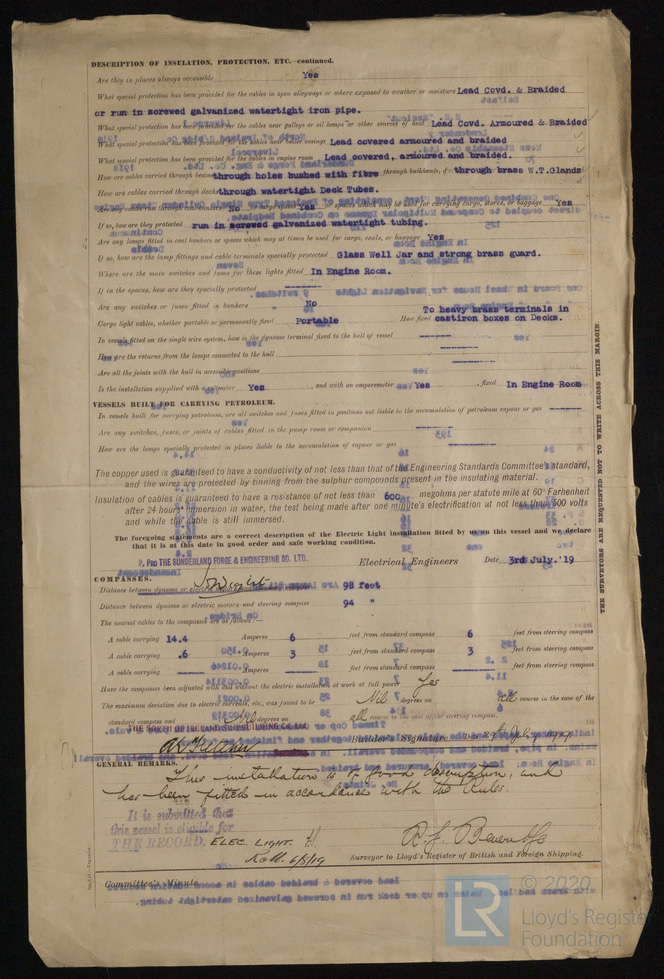 DESCRIPTION OF INSULATION, PROTECTION, ETC.—continued.
Are they in places always accessible Yes
What special protection has been provided for the cables in open alleyways or where exposed to weather or moisture Lead Covd. & Braided
or run in screwed galvanized watertight iron pipe.
What special protection has been provided for the cables near galleys or oil lamps or other sources of heat Lead Covd. Armoured & Braided
What special protection has been provided for the cables near boiler casings Lead covered armoured and braided
What special protection has been provided for the cables in engine room Lead covered, armoured and braided.
How are cables carried through beams through holes bushed with fibre through bulkheads, &c. through brass W.T.Glands
How are cables carried through decks through watertight Deck Tubes.
Are any cables run through coal bunkers No or cargo spaces Yes or spaces which may be used for carrying cargo, stores, or baggage Yes
If so, how are they protected run in screwed galvanized watertight tubing.
Are any lamps fitted in coal bunkers or spaces which may at times be used for cargo, coals, or baggage Yes
If so, how are the lamp fittings and cable terminals specially protected Glass Well Jar and strong brass guard.
Where are the main switches and fuses for these lights fitted In Engine Room.
If in the spaces, how are they specially protected
Are any switches or fuses fitted in bunkers No
Cargo light cables, whether portable or permanently fixed Portable How fixed To heavy brass terminals in castiron boxes on Decks.
In vessels fitted on the single wire system, how is the dynamo terminal fixed to the hull of vessel
How are the returns from the lamps connected to the hull
Are all the joints with the hull in accessible positions
Is the installation supplied with a voltmeter Yes , and with an amperemeter Yes , fixed In Engine Room
VESSELS BUILT FOR CARRYING PETROLEUM.
In vessels built for carrying petroleum, are all switches and fuses fitted in positions not liable to the accumulation of petroleum vapour or gas
Are any switches, fuses, or joints of cables fitted in the pump room or companion
How are the lamps specially protected in places liable to the accumulation of vapour or gas
The copper used is guaranteed to have a conductivity of not less than that of the Engineering Standards Committee's standard,
and the wires are protected by tinning from the sulphur compounds present in the insulating material.
Insulation of cables is guaranteed to have a resistance of not less than 600 megohms per statute mile at 60° Farhenheit
after 24 hours' immersion in water, the test being made after one minute's electrification at not less than 500 volts
and while the cable is still immersed.
The foregoing statements are a correct description of the Electric Light installation fitted by us on this vessel and we declare
that it is at this date in good order and safe working condition.
P. Pro THE SUNDERLAND FORGE & ENGINEERING CO. LTD. Electrical Engineers Date 3rd July.'19
COMPASSES.
Distance between dynamo or electric motors and standard compass 98 feet
Distance between dynamo or electric motors and steering compass 94 "
The nearest cables to the compasses are as follows:—
A cable carrying 14.4 Amperes 6 feet from standard compass 6 feet from steering compass
A cable carrying .6 Amperes 3 feet from standard compass 3 feet from steering compass
A cable carrying Amperes feet from standard compass feet from steering compass
Have the compasses been adjusted with and without the electric installation at work at full power Yes
The maximum deviation due to electric currents, etc., was found to be Nil degrees on all course in the case of the
standard compass and Nil degrees on all course in the case of the steering compass.
THE NORTH OF IRELAND SHIPBUILDING Co. LTD.
Builder's Signature.
GENERAL REMARKS.
This installation is of good description, and
has been fitted in accordance with the Rules.
It is submitted that
this vessel is eligible for
THE RECORD. ELEC. LIGHT.
6/8/19
Surveyor to Lloyd's Register of British and Foreign Shipping.
Committee's Minute
THE SURVEYORS ARE REQUESTED NOT TO WRITE ACROSS THIS MARGIN
© 2020
LR
Lloyd's Register
Foundation